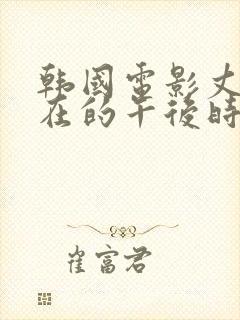 韩國電影丈
在的午後時
崔富君